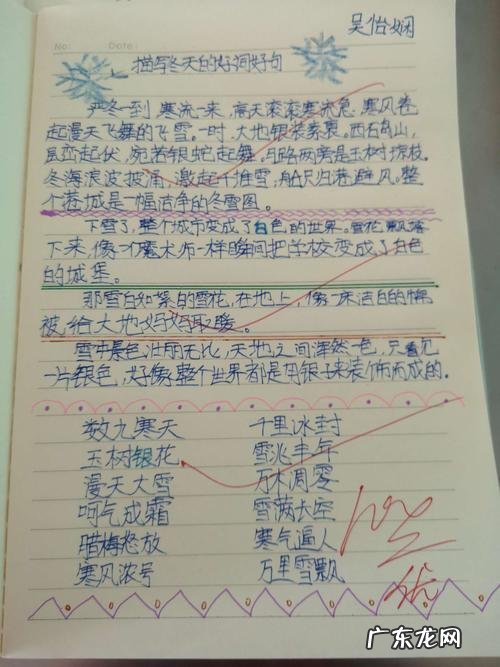 吴怡娴
No: Date:
描写冬天的好词好句
严冬一到,寒流一来,高天滚滚寒流急,寒风卷
起漫天飞舞的飞雪。一时,大地银装素裹。西石岛山,
起伏,宛若银蛇起舞。马路两旁是玉树琼枝。
冬海浪波披涌,激起千堆雪,船只归港避风。整
个港城是一幅洁净的冬雪图。
下雪了,整个城市变成了白色的世界。雪花飘落
下来,像个魔术师一样瞬间把学校变成了白色
的城堡。
那雪白如絮的雪花,在地上,像一床洁白的棉
被,给大地妈妈取暖。
雪中景色壮丽无比,天地之间浑然一色,只看见
一片银色,好像整个世界都是用银来装饰而成的。
数九寒天 千里冰封
玉树银花 雪兆丰年
漫天大雪 万木凋零
呵气成霜 雪满长空
腊梅怒放 寒气逼人
寒风浓号 万里雪飘
100
优
广东龙网